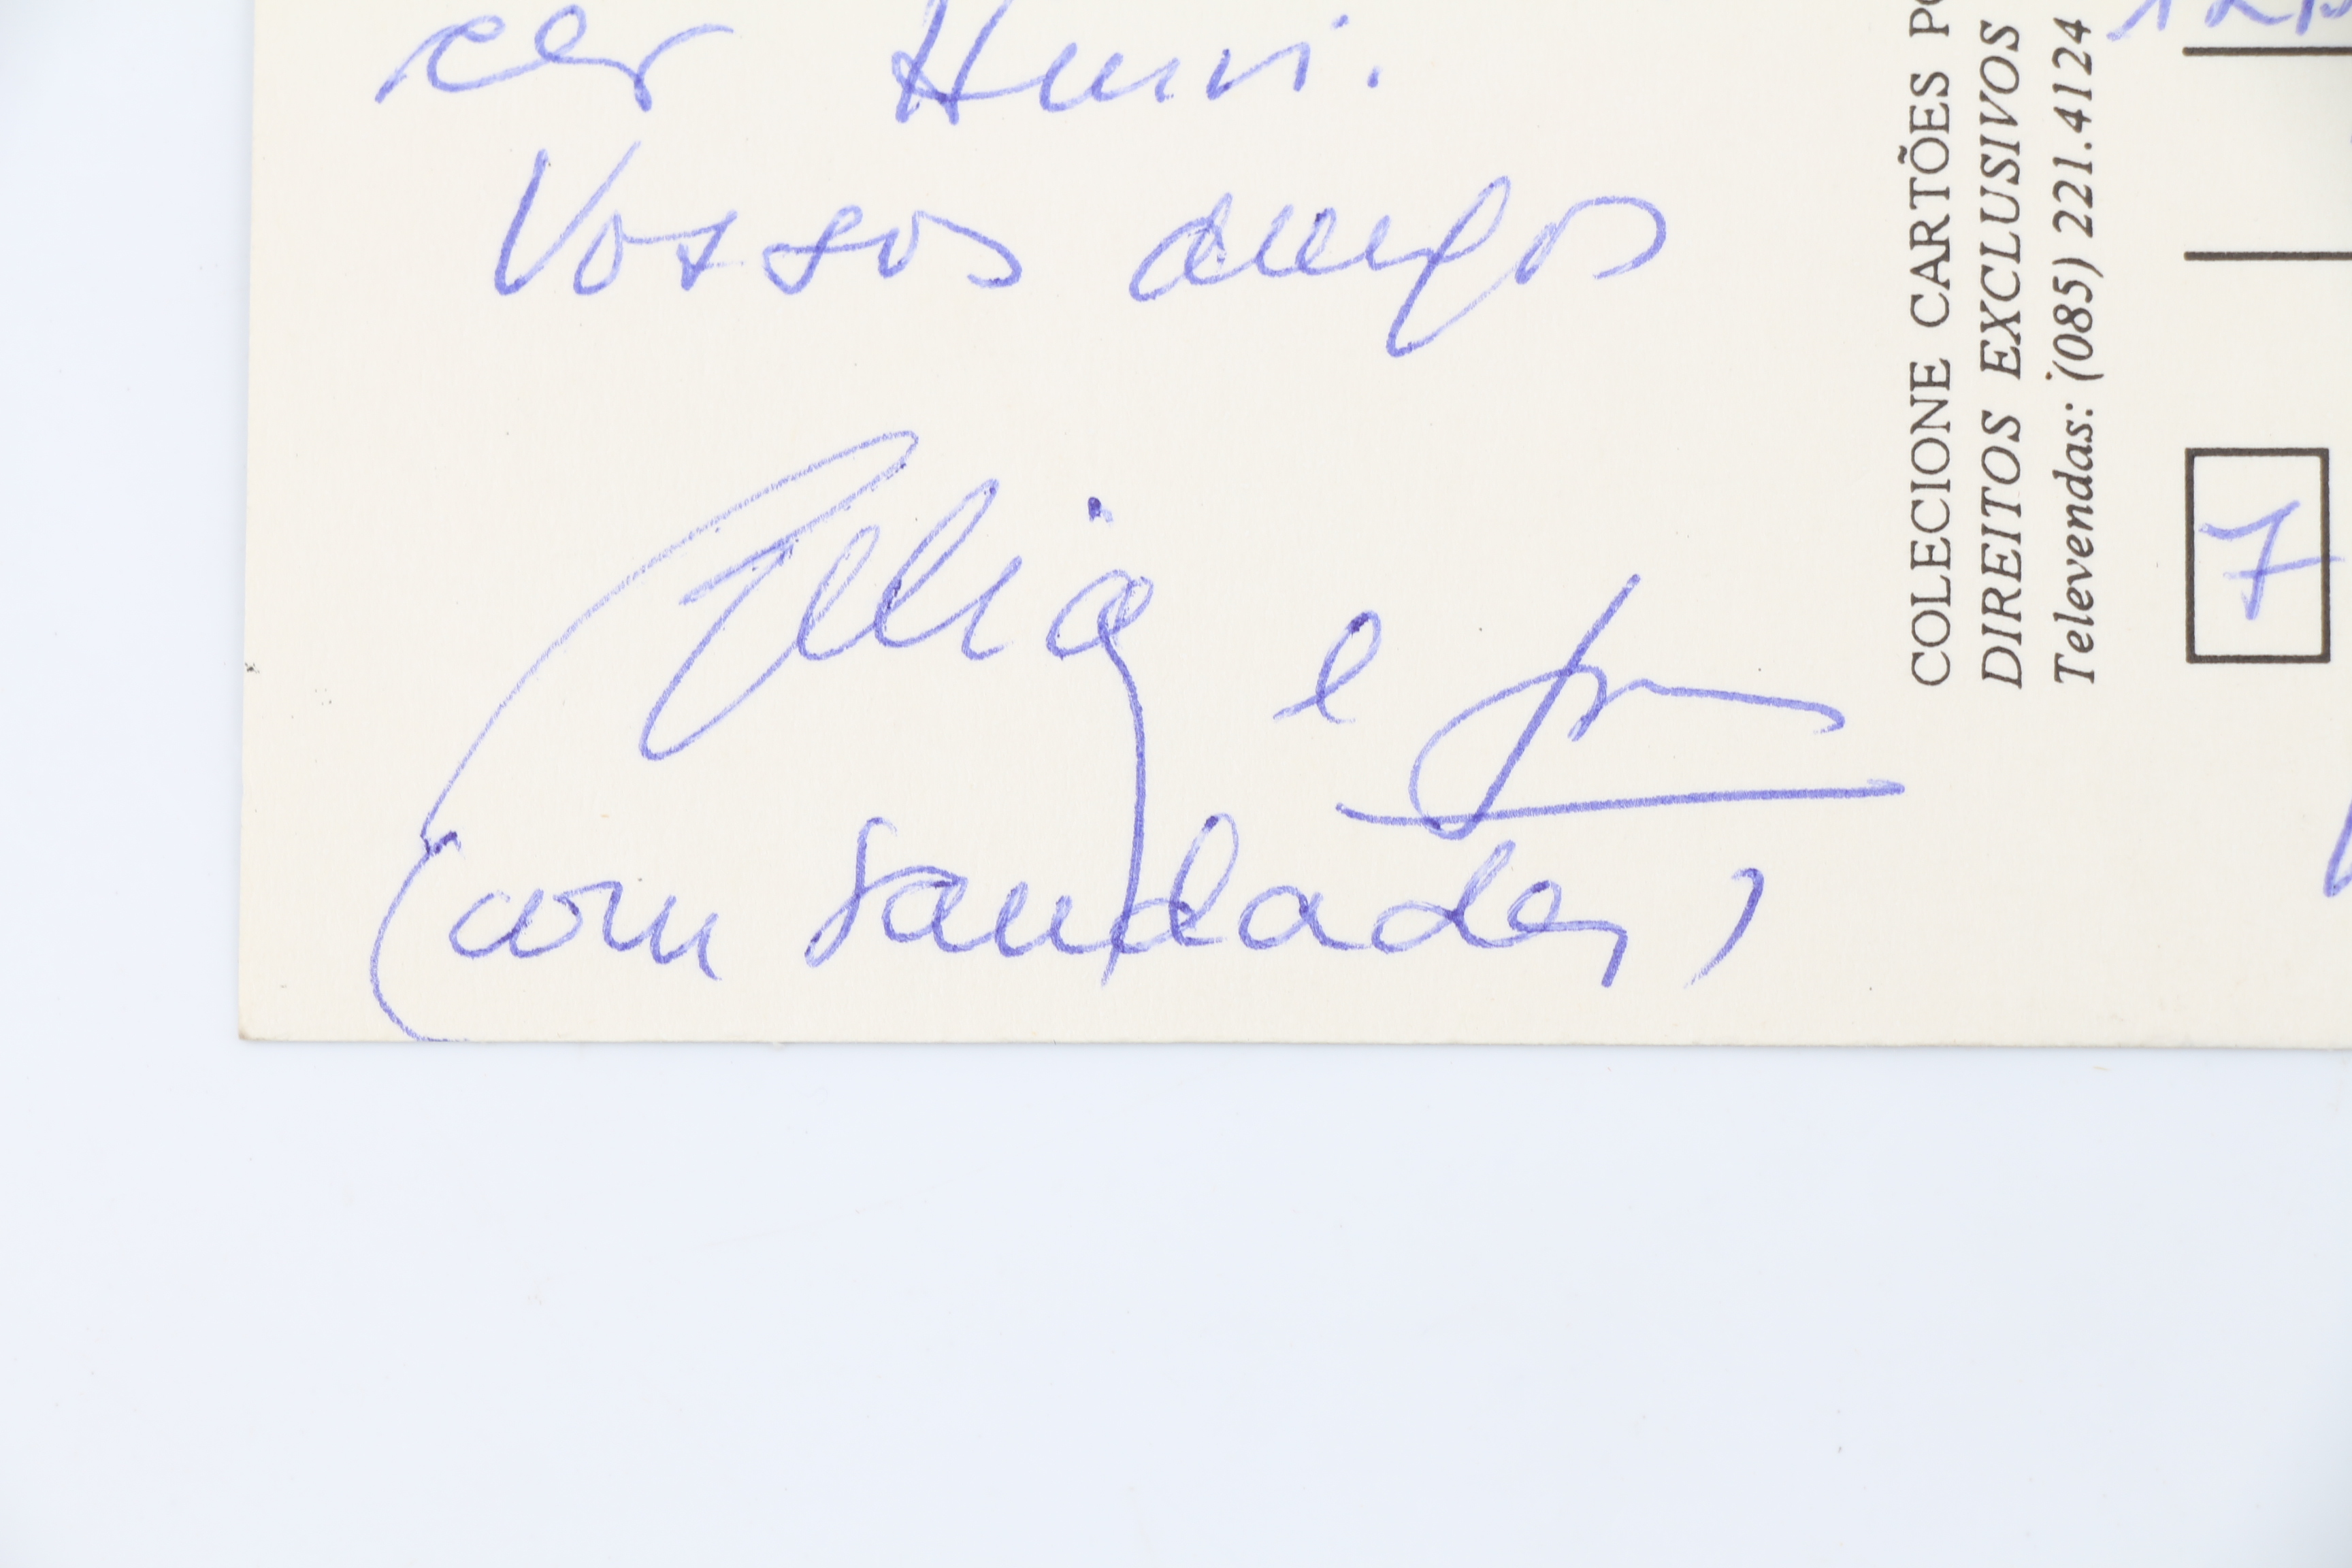 cer Henri.
Vossos amigos
Zélia e
(com saudades)
COLECIONE CARTÕES
DIREITOS EXCLUSIVOS
Televendas: (085) 221.4124
7